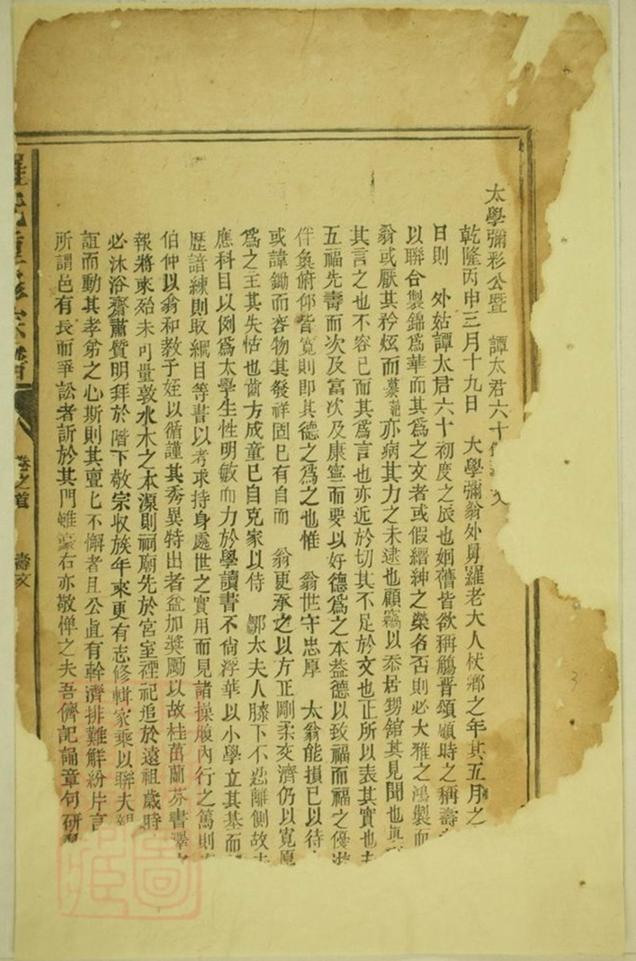 太學彌彩公暨　譚太君六十
乾隆丙申三月十九日　大學彌翁外舅羅老大人杖鄉之年其五月之
日則　外姑譚太君六十初度之辰也姻舊皆欲稱觴晉頌顧時之稱壽
以聯合製錦爲華而其爲之文者或假縉紳之榮名否則必大雅之鴻製而
翁或厭其矜炫而亦病其力之未逮也顧竊以忝居甥舘其見聞也眞
其言之也不容已而其爲言也亦近於切其不足於文也正所以表其實也
五福先壽而次及富次及康寧而要以好德爲之本葢德以致福而福之優
伴奐俯仰皆寬則卽其德之爲之也惟　翁世守忠厚　太翁能損已以待
或諱鋤而吝物其發祥固已有自而　翁更承之以方正剛柔交濟仍以寬
爲之主其失怙也齒方成童已自克家以侍　鄒太夫人膝下不忍離側故
應科目以例爲太學生性明敏而力於學讀書不尚浮華以小學立其基而
歷諳練則取綱目等書以考求持身處世之實用而見諸操履內行之篤則
伯仲以翁和教子姪以循謹其秀異特出者益加奬勵以故桂茁蘭芬書澤
報將來殆未可量敦水木之本源則祠廟先於宮室禋祀追於遠祖歲時
必沐浴齋肅贊明拜於階下敬宗收族年來更有志修輯家乘以聯大
誼而動其孝弟之心斯則其亹亹不懈者且公直有幹濟排難觧紛片言
所謂邑有長而爭訟者訢於其門雖豪右亦敬憚之夫吾儕記誦章句研
羅氏重修宗譜
卷之首
壽文